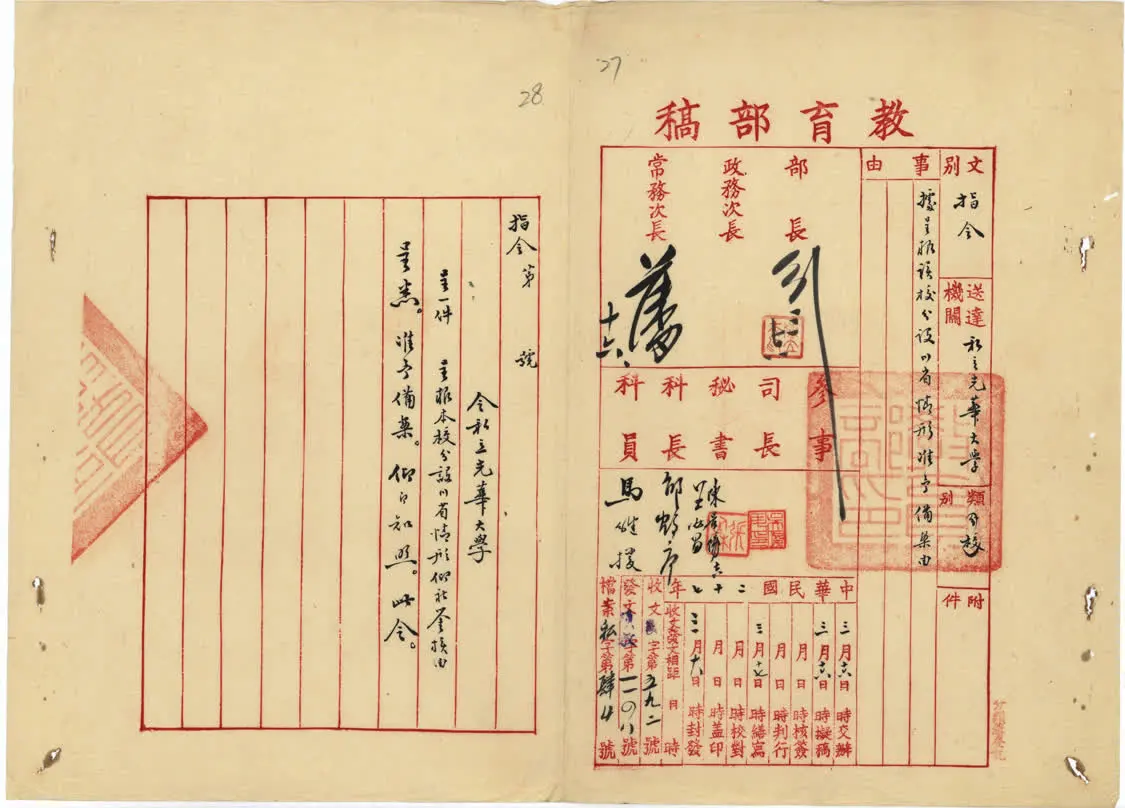 27
教育部稿
文別
指令
送達機關
私立光華大學
類別
附件
事由
據呈報該校分設川省情形准予備案由
部長
政務次長
常務次長
十六
參事
司長
秘書
科長
科員
中華民國二十七年
三月十六日 時交辦
三月十六日 時擬稿
月 日 時核簽
月 日 時判行
三月十七日 時繕寫
月 日 時校對
月 日 時蓋印
三月十八日 時封發
收文發文相距 日 時
收文 字第五九二號
發文 字第一一〇八號
檔案私字第肆 號
28
指令 第 號
令私立光華大學
呈一件 呈報本校分設川省情形仰祈鑒核由
呈悉。准予備案。仰即知照。此令。